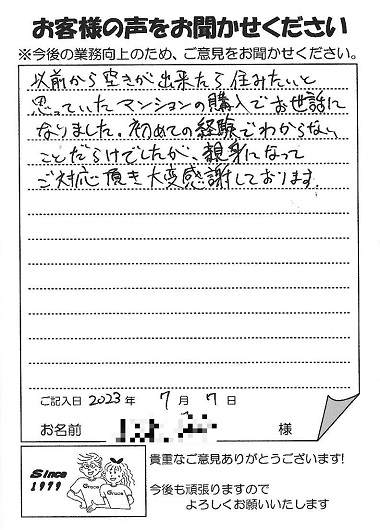 お客様の声をお聞かせください
※今後の業務向上のため、ご意見をお聞かせください。
以前から空きが出来たら住みたいと
思っていたマンションの購入でお世話に
なりました。初めての経験でわからない
ことだらけでしたが、親身になって
ご対応頂き大変感謝しております。
ご記入日 2023年 7月 7日
お名前 様
Since
1979
Grace
Grace
貴重なご意見ありがとうございます!
今後も頑張りますので
よろしくお願いいたします